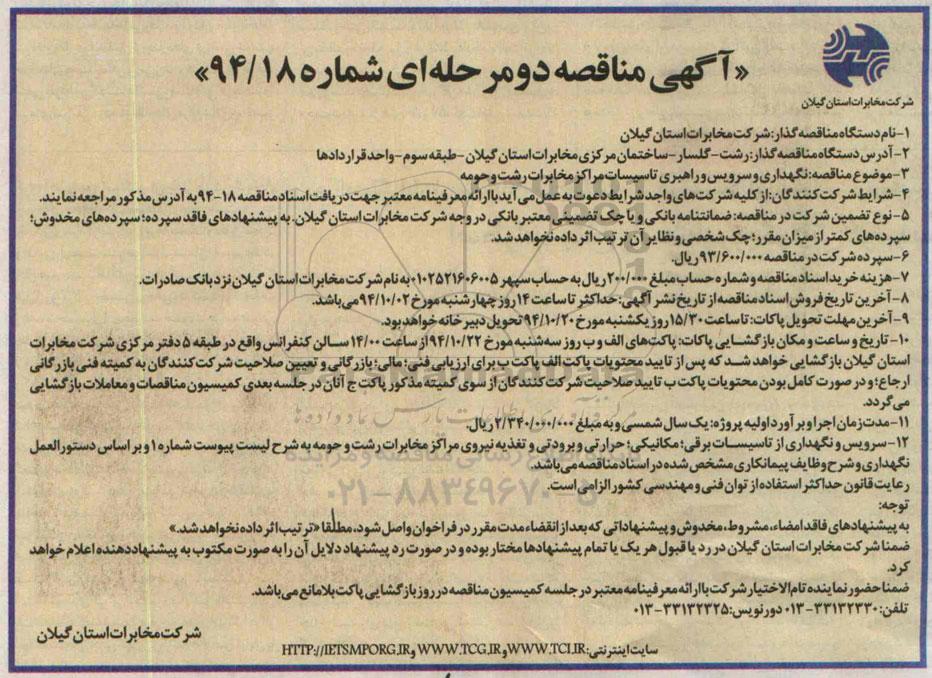 شرکت مخابرات استان گیلان
«آگهی مناقصه دو مرحله‌ای شماره ۹۴/۱۸»
۱-نام دستگاه مناقصه گذار: شرکت مخابرات استان گیلان
۲-آدرس دستگاه مناقصه گذار: رشت-گلسار-ساختمان مرکزی مخابرات استان گیلان-طبقه سوم-واحد قراردادها
۳-موضوع مناقصه: نگهداری و سرویس و راهبری تاسیسات مراکز مخابرات رشت و حومه
۴-شرایط شرکت کنندگان: از کلیه شرکت‌های واجد شرایط دعوت به عمل می آید با ارائه معرفینامه معتبر جهت دریافت اسناد مناقصه ۱۸-۹۴ به آدرس مذکور مراجعه نمایند.
۵-نوع تضمین شرکت در مناقصه: ضمانتنامه بانکی و یا چک تضمینی معتبر بانکی در وجه شرکت مخابرات استان گیلان. به پیشنهادهای فاقد سپرده؛ سپرده‌های مخدوش؛
سپرده‌های کمتر از میزان مقرر؛ چک شخصی و نظایر آن ترتیب اثر داده نخواهد شد.
۶-سپرده شرکت در مناقصه ۹۳/۶۰۰/۰۰۰ ریال.
۷-هزینه خرید اسناد مناقصه و شماره حساب مبلغ ۲۰۰/۰۰۰ ریال به حساب سپهر ۰۱۰۲۵۲۱۶۰۶۰۰۵ به نام شرکت مخابرات استان گیلان نزد بانک صادرات.
۸-آخرین تاریخ فروش اسناد مناقصه از تاریخ نشر آگهی: حداکثر تا ساعت ۱۴ روز چهارشنبه مورخ ۹۴/۱۰/۰۲ می‌باشد.
۹-آخرین مهلت تحویل پاکات: تا ساعت ۱۵/۳۰ روز یکشنبه مورخ ۹۴/۱۰/۲۰ تحویل دبیرخانه خواهد بود.
۱۰-تاریخ و ساعت و مکان بازگشایی پاکات: پاکت‌های الف و ب روز سه‌شنبه مورخ ۹۴/۱۰/۲۲ از ساعت ۱۴/۰۰ سالن کنفرانس واقع در طبقه ۵ دفتر مرکزی شرکت مخابرات
استان گیلان بازگشایی خواهد شد که پس از تایید محتویات پاکت الف پاکت ب برای ارزیابی فنی؛ مالی؛ بازرگانی و تعیین صلاحیت شرکت کنندگان به کمیته فنی بازرگانی
ارجاع؛ و در صورت کامل بودن محتویات پاکت ب تایید صلاحیت شرکت کنندگان از سوی کمیته مذکور پاکت ج آنان در جلسه بعدی کمیسیون مناقصات و معاملات بازگشایی
می گردد.
۱۱-مدت زمان اجرا و برآورد اولیه پروژه: یک سال شمسی و به مبلغ ۲/۳۴۰/۰۰۰/۰۰۰ ریال.
۱۲-سرویس و نگهداری از تاسیسات برقی؛ مکانیکی؛ حرارتی و برودتی و تغذیه نیروی مراکز مخابرات رشت و حومه به شرح لیست پیوست شماره ۱ و بر اساس دستورالعمل
نگهداری و شرح وظایف پیمانکاری مشخص شده در اسناد مناقصه می‌باشد.
رعایت قانون حداکثر استفاده از توان فنی و مهندسی کشور الزامی است.
توجه:
به پیشنهادهای فاقد امضاء، مشروط، مخدوش و پیشنهاداتی که بعد از انقضاء مدت مقرر در فراخوان واصل شود، مطلقا «ترتیب اثر داده نخواهد شد.»
ضمنا شرکت مخابرات استان گیلان در رد یا قبول هر یک یا تمام پیشنهادها مختار بوده و در صورت رد پیشنهاد دلایل آن را به صورت مکتوب به پیشنهاددهنده اعلام خواهد
کرد.
ضمنا حضور نماینده تام‌الاختیار شرکت با ارائه معرفینامه معتبر در جلسه کمیسیون مناقصه در روز بازگشایی پاکت بلامانع می‌باشد.
تلفن: ۳۳۱۳۲۳۳۰-۰۱۳ دورنویس: ۳۳۱۳۲۳۲۵-۰۱۳
شرکت مخابرات استان گیلان
سایت اینترنتی: WWW.TCI.IR و WWW.TCG.IR و HTTP://IETSMPORG.IR
۰۲۱-۸۸۳۴۹۶۷۰-۵